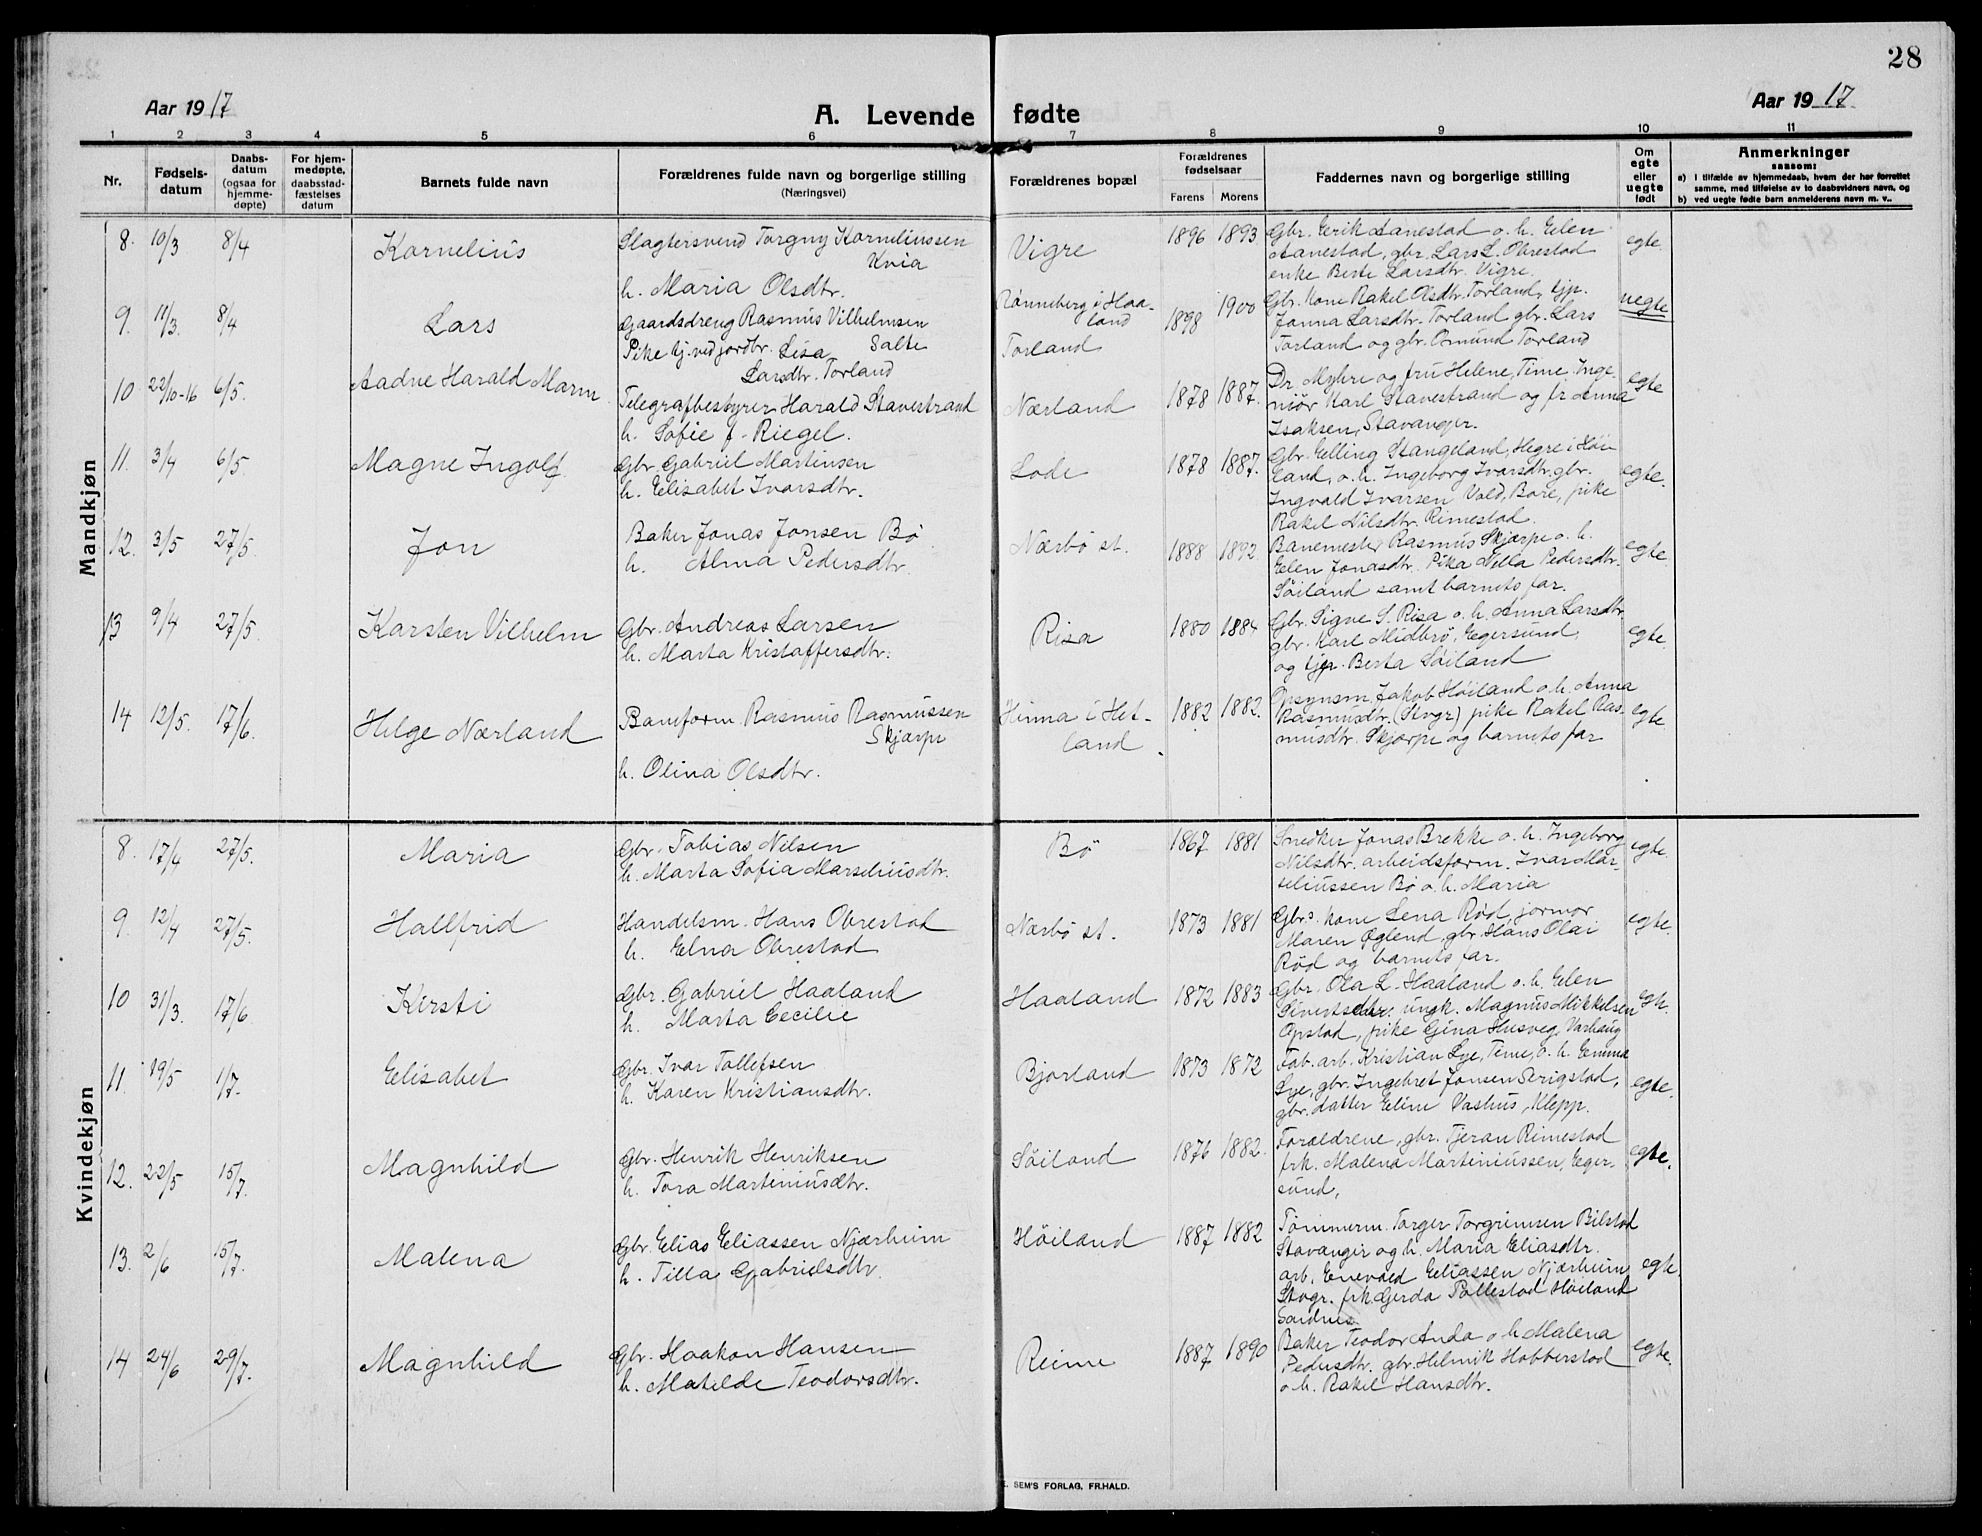 28
Aar 1917
A. Levende fødte
Aar 1917
1 2 3 4 5 6 7 8 9 10 11
Nr.
Fødsels-
datum
Daabs-
datum
(ogsaa for
hjemme-
døpte)
For hjem-
medøpte,
daabsstad-
fæstelses
datum
Barnets fulde navn
Forældrenes fulde navn og borgerlige stilling
(Næringsvei)
Forældrenes bopæl
Forældrenes
fødselsaar
Farens Morens
Faddernes navn og borgerlige stilling
Om
egte
eller
uegte
født
Anmerkninger
saasom:
a) i tilfælde av hjemmedaab, hvem der har forrettet
samme, med tilføielse av to daabsvidners navn, og
b) ved uegte fødte barn anmelderens navn m. v..
Mandkjøn
8. 10/3 8/4 Kornelius
Slagtersvend Torgny Korneliussen
Kvia
h. Maria Olsdtr.
Vigre
1896 1893
Gbr. Erik Aanestad o. h. Elen
Aanestad, gbr. Lars L. Obrestad
enke Berte Larsdtr. Vigre.
egte.
9. 11/3. 8/4 Lars
Gaardsdreng Rasmus Vilhelmsen
Salte
Pike tj. ved jordbr. Lisa
Larsdtr. Torland
Rønneberg i Haa-
land
Torland
1898 1900
Gbr. kone Rakel Olsdtr. Torland, tjp.
Janna Larsdtr. Torland gbr. Lars
Torland og gbr. Osmund Torland
uegte
10 22/10-16 6/5. Aadne Harald Marm
Telegrafbestyrer Harald Stavestrand
h. Sofie f. Riegel.
Nærland
1878 1887.
Dr. Myhre og fru Helene, Time. Inge-
niör Karl Stavestrand og fr Anna
Isaksen, Stavanger.
egte
11. 3/4 6/5. Magne Ingolf
Gbr. Gabriel Martinsen
h. Elisabet Ivarsdtr.
Lode
1878 1887.
Gbr. Elling Stangeland, Hegre i Höi-
land, o. h. Ingeborg Ivarsdtr, gbr.
Ingvald Ivarsen Vold, Bore, pike
Rakel Nilsdtr. Rimestad.
egte.
12. 3/5 27/5. Jon
Baker Jonas Jonsen Bø
h. Alma Pedersdtr.
Nærbö st.
1888 1892.
Banemester Rasmus Skjærpe o. h.
Elen Jonasdtr. Pike Nella Pedersdtr.
Söiland samt barnets far.
egte
13 9/4 27/5. Karsten Vilhelm
Gbr. Andreas Larsen
h. Marta Kristoffersdtr.
Risa
1880 1884
Gbr. Signe S. Risa o. h. Anna Larsdtr
gbr. Karl Midbrö, Egersund,
og tjp. Berta Söiland
egte.
14 12/5. 17/6. Helge Nærland
Baneform. Rasmus Rasmussen
Skjærpe
h. Olina Olsdtr.
Hinna i Het-
land
1882 1882.
Opsynsm. Jakob Höiland o. h. Anna
Rasmusdtr. (Stvgr) pike Rakel Ras-
musdtr. Skjærpe og barnets far
egte.
Kvindekjøn
8. 17/4 27/5. Maria
Gbr. Tobias Nilsen
h. Marta Sofia Marseliusdtr.
Bö
1867 1881
Snedker Jonas Brekke o. h. Ingeborg
Nilsdtr. arbeidsform. Ivar Mar-
seliussen Bö o. h. Maria
egte.
9. 12/4 27/5. Hallfrid
Handelsm. Hans Obrestad
h. Elna Obrestad
Nærbö st.
1873 1881
Gbr.s kone Lena Rød, jormor
Maren Øglend, gbr. Hans Olai
Röd og barnets far.
egte.
10 31/3. 17/6 Kirsti
Gbr. Gabriel Haaland
h. Marta Cecilie
Haaland
1872 1883
Gbr. Ola L. Haaland o. h. Elen
Sivertsdtr. ungk. Magnus Mikkelsen
Opstad, pike Gina Husveg, Varhaug
egte.
11. 19/5 1/7. Elisabet
Gbr. Ivar Tollefsen
h. Karen Kristiansdtr.
Bjorland
1873 1872
Fab. arb. Kristian Lye, Time, o. h. Emma
Lye, gbr. Ingebret Jonsen Serigstad,
gbr. datter Eline Vashus, Klepp.
egte.
12. 22/5 15/7. Magnhild
Gbr. Henrik Henriksen
h. Tora Martiniusdtr.
Söiland
1876 1882.
Forældrene, gbr. Tjeran Rimestad
frk. Malena Martiniussen, Eger-
sund,
egte.
13. 2/6 15/7. Malena
Gbr. Elias Eliassen Njærheim
h. Tilla Gabrielsdtr.
Höiland
1887 1882
Tömmerm. Torger Torgrimsen Bilstad
Stavanger og h. Maria Eliasdtr.
arb. Enevald Eliassen Njærheim
Stvgr. frk Gerda Pollestad Höiland
Sandnes
egte.
14 24/6 29/7. Magnhild
Gbr. Haakon Hansen
h. Matilde Teodorsdtr.
Reime
1887 1890
Baker Teodor Anda o h Malena
Pedersdtr. gbr. Helmik Hobberstad
o. h. Rakel Hansdtr.
egte.
SEM'S FORLAG, FR.HALD.